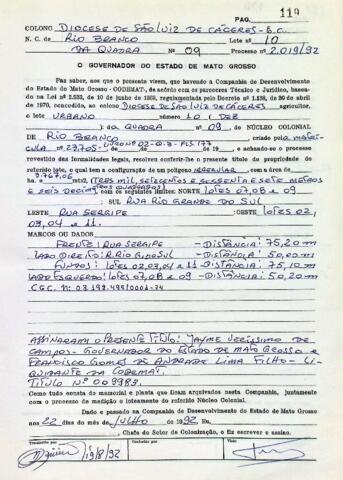 PAG. 119
COLONO DIOCESE DE SÃO LUIZ DE CÁCERES-S.C.
N. C. de RIO BRANCO Lote nº 10
DA QUADRA Nº 09 Processo nº 2.019/92
O GOVERNADOR DO ESTADO DE MATO GROSSO
Faz saber, aos que o presente virem, que havendo a Companhia de Desenvolvimento
do Estado de Mato Grosso - CODEMAT, de acôrdo com os pareceres Técnico e Jurídico, baseado
na Lei nº 2.933, de 10 de junho de 1988, regulamentada pelo Decreto nº 1.138, de 30 de abril
de 1970, concedido, ao colono DIOCESE DE SÃO LUIZ DE CÁCERES agricultor, o
lote URBANO número 10 (DEZ
) da QUADRA nº 09, do NÚCLEO COLONIAL
DE RIO BRANCO LIVRO Nº 02-Q.B-FLS.177 criado pela MATRÍ-
CULA Nº 23.705 - de 19 e achando-se o processo
revestido das formalidades legais, resolveu conferir-lhe o presente título de propriedade do
referido lote, o qual tem a configuração de um polígono IRREGULAR com a área de
3.767,06
ha. e m2 (TRES MIL, SETECENTOS E SESSENTA E SETE METROS
E SEIS DECIM. QUADRADOS) com os seguintes limites: NORTE LOTES 07, 08 e 09
SUL RUA RIO GRANDE DO SUL
LESTE RUA SERGIPE OESTE LOTES 02,
03, 04 e 11.
MARCOS OU DADOS
FRENTE: RUA SERGIPE - DISTÂNCIA: 75,20 m
LADO DIREITO: R. RIO G. DO SUL - DISTÂNCIA: 50,00 m
FUNDOS: LOTES 02, 03, 04 e 11 - DISTÂNCIA: 75,10 m
LADO ESQUERDO: LOTES 07, 08 e 09 - DISTÂNCIA: 50,20 m
C.G.C. Nº: 03.198.499/0001-74
ASSINARAM O PRESENTE TÍTULO: JAYME VERISSIMO DE
CAMPOS - GOVERNADOR DO ESTADO DE MATO GROSSO e
FRANCISCO GOMES DE ANDRADE LIMA FILHO - LI-
QUIDANTE DA CODEMAT.
TÍTULO Nº 009983.
Como tudo consta do memorial e planta que ficam arquivados nesta Companhia, juntamente
com o processo de medição e loteamento do referido Núcleo Colonial.
Dado e passado na Companhia de Desenvolvimento do Estado de Mato Grosso
aos 22 dias do mês de JULHO de 1992. Eu,
, Chefe do Setor de Colonização, o fiz escrever e assino.
Transcrito por
Conferido por
Visto
19/8/92